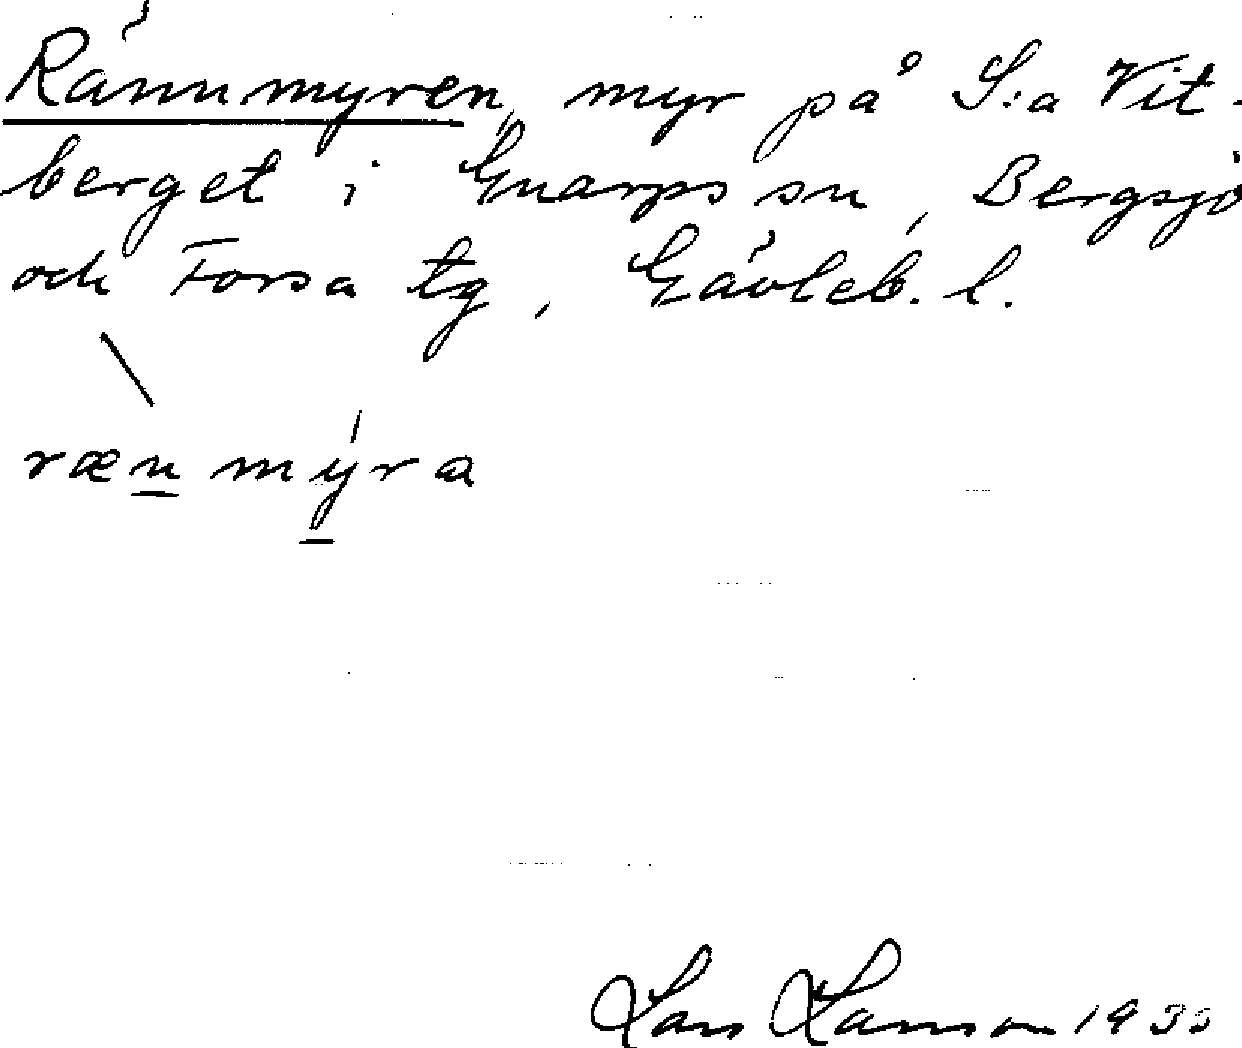 Rännmyren, myr på S:a Vit-
berget i Gnarps sn, Bergsjö
och Forsa tg, Gävleb. l.
\
ræn mýra
Lars Larsson 1935